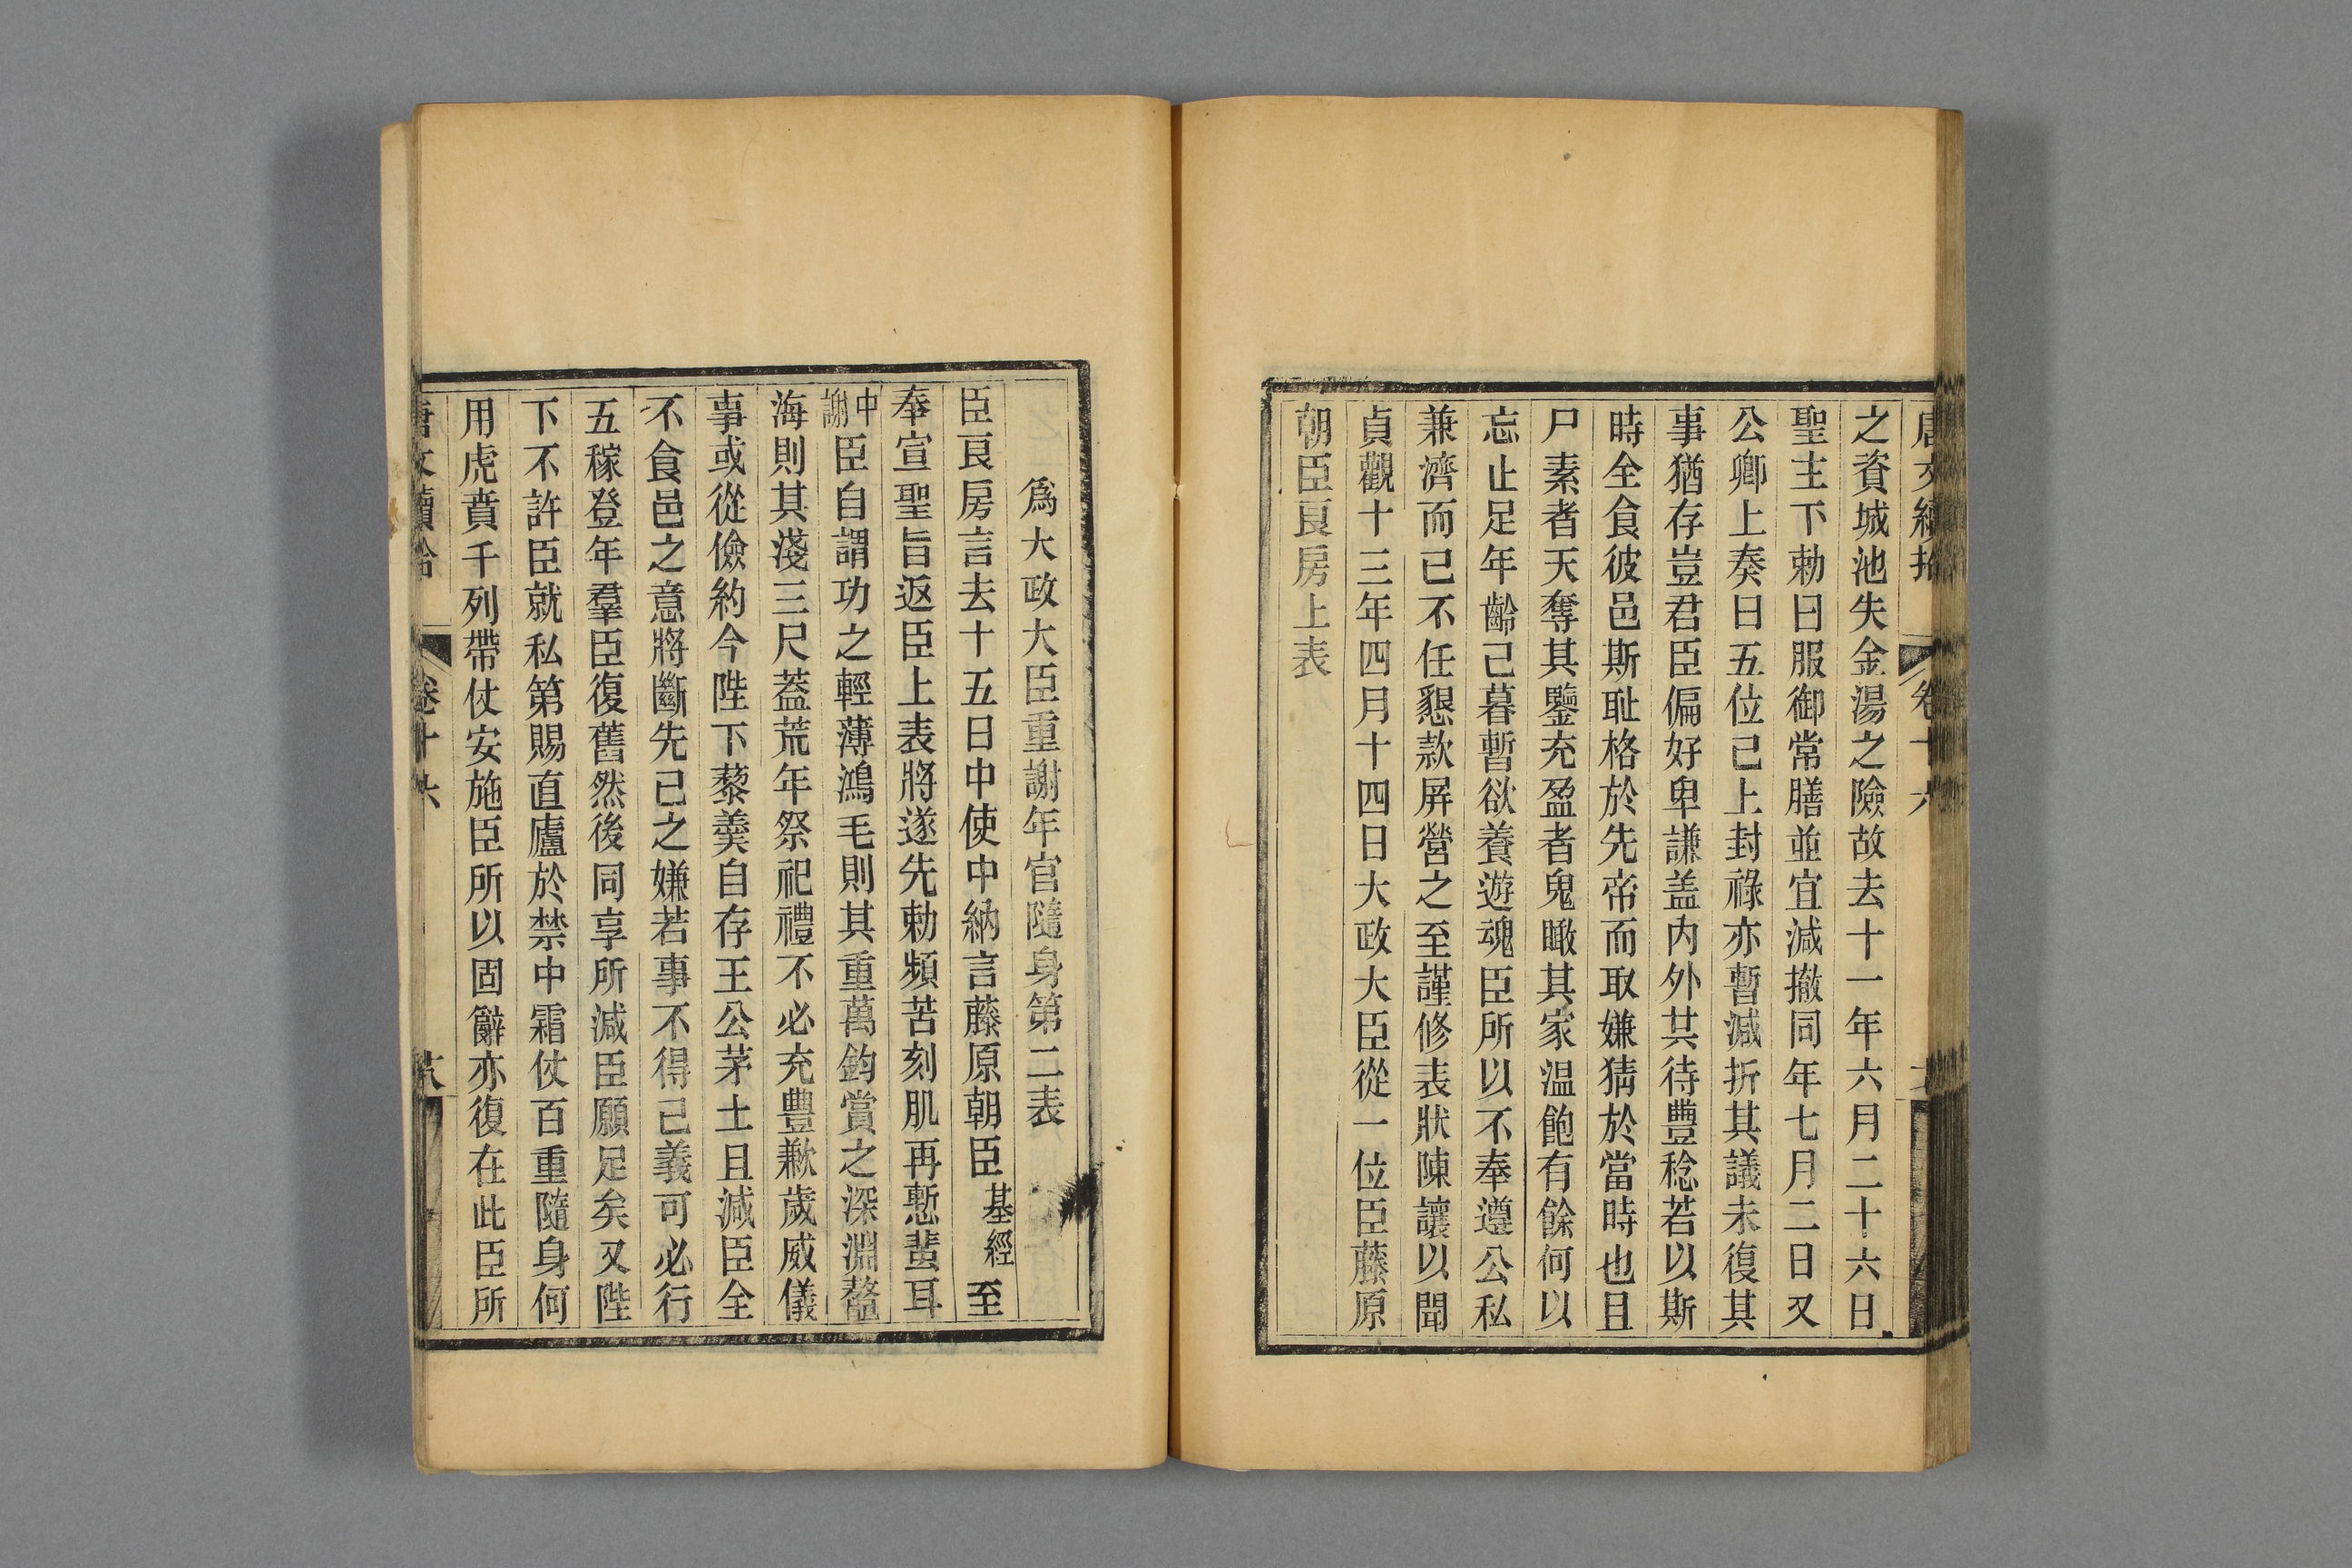 唐文續拾 卷十六
之資城池失金湯之險故去十一年六月二十六日
聖主下勅曰服御常膳並宜減撤同年七月二日又
公卿上奏曰五位己上封祿亦暫減折其議未復其
事猶存豈君臣偏好卑謙盖内外共待豐稔若以斯
時全食彼邑斯耻格於先帝而取嫌猜於當時也且
尸素者天奪其鑒充盈者鬼瞰其家温飽有餘何以
忘止足年齡己暮暫欲養遊魂臣所以不奉遵公私
兼濟而已不任懇款屏營之至謹修表狀陳讓以聞
貞觀十三年四月十四日大政大臣從一位臣藤原
朝臣良房上表
爲大政大臣重謝年官隨身第二表
臣良房言去十五日中使中納言藤原朝臣基經至
奉宣聖旨返臣上表將遂先勅頻苦刻肌再慙蜚耳
中謝臣自謂功之輕薄鴻毛則其重萬鈞賞之深淵鼇
海則其淺三尺蓋荒年祭祀禮不必充豐歉歲威儀
事或從儉約今陛下藜羹自存王公茅土且減臣全
不食邑之意將斷先己之嫌若事不得已義可必行
五稼登年羣臣復舊然後同享所減臣願足矣又陛
下不許臣就私第賜直廬於禁中霜仗百重隨身何
用虎賁千列帶仗安施臣所以固辭亦復在此臣所
唐文續拾 卷十六